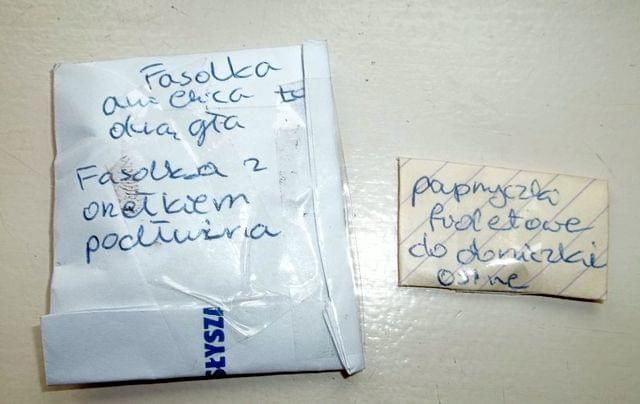 Fasolka
america to
okrągła
Fasolka z
orzełkiem
podłużna
SŁYSZ
papryczki
fioletowe
do doniczki
ostre